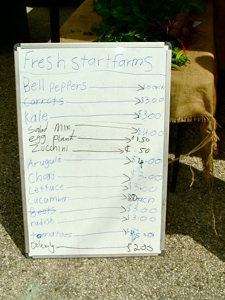 Fresh start farms
Bell peppers each
Carrots $3.00
Kale $3.00
Salad Mix $6.00
egg plant $1.50
Zucchini .50
Arugula $4.00
Chard $3.00
Lettuce
Cucumber each
Beets $3.00
radish $3.00
tomatoes
$2.00